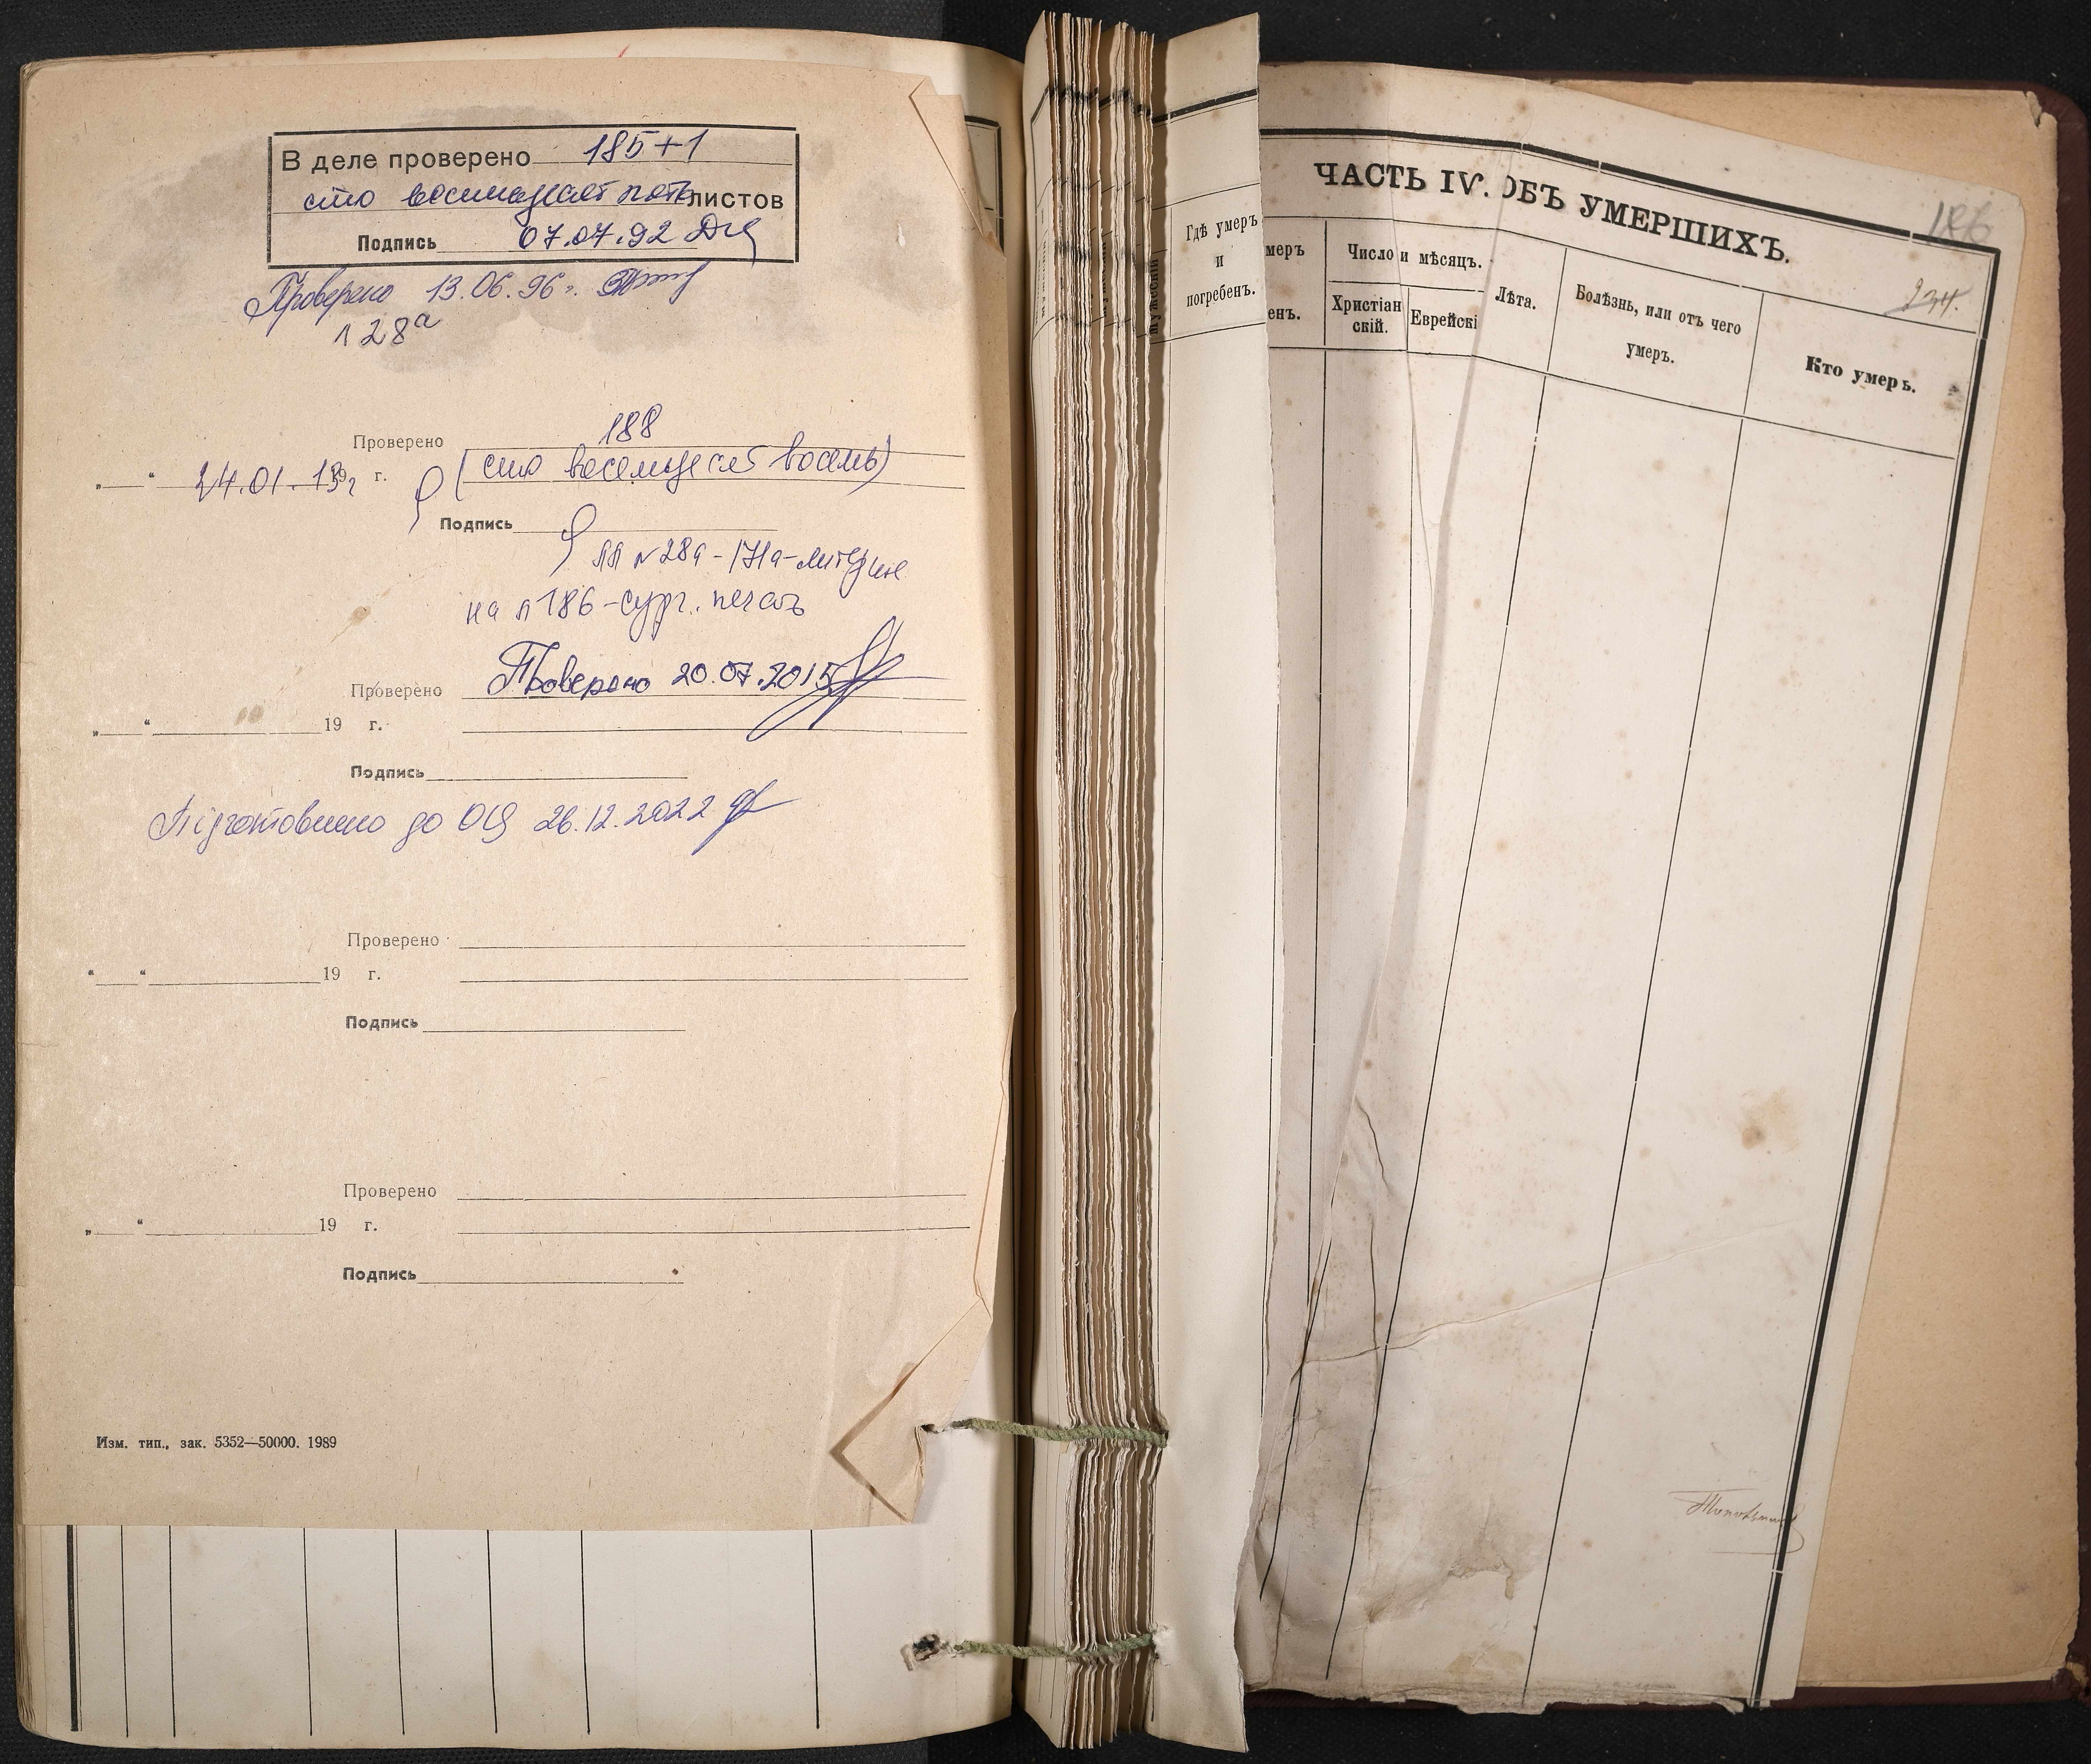 В деле проверено 185+1
сто восемьдесят пять листов
Подпись 07.07.92
Проверено 13.06.96г.
л 28а
Проверено 188
„ “ 24.01.13г 19 г. (сто восемьдесят восемь)
Подпись
лл № 28а-171а-литерные
на л 186-сург. печать
Проверено Проверено 20.07.2015
„ “ 19 г.
Подпись
Підготовлено до ОЦ 26.12.2022
Проверено
“ “ 19 г.
Подпись
Проверено
„ “ 19 г.
Подпись
Изм. тип., зак. 5352—50000. 1989
Мужескій
Гдѣ умеръ
и
погребенъ.
ЧАСТЬ IV. ОБЪ УМЕРШИХЪ.
186
234.
меръ
енъ.
Число и мѣсяцъ.
Христіан
скій.
Еврейскі
Лѣта.
Болѣзнь, или отъ чего
умеръ.
Кто умеръ.